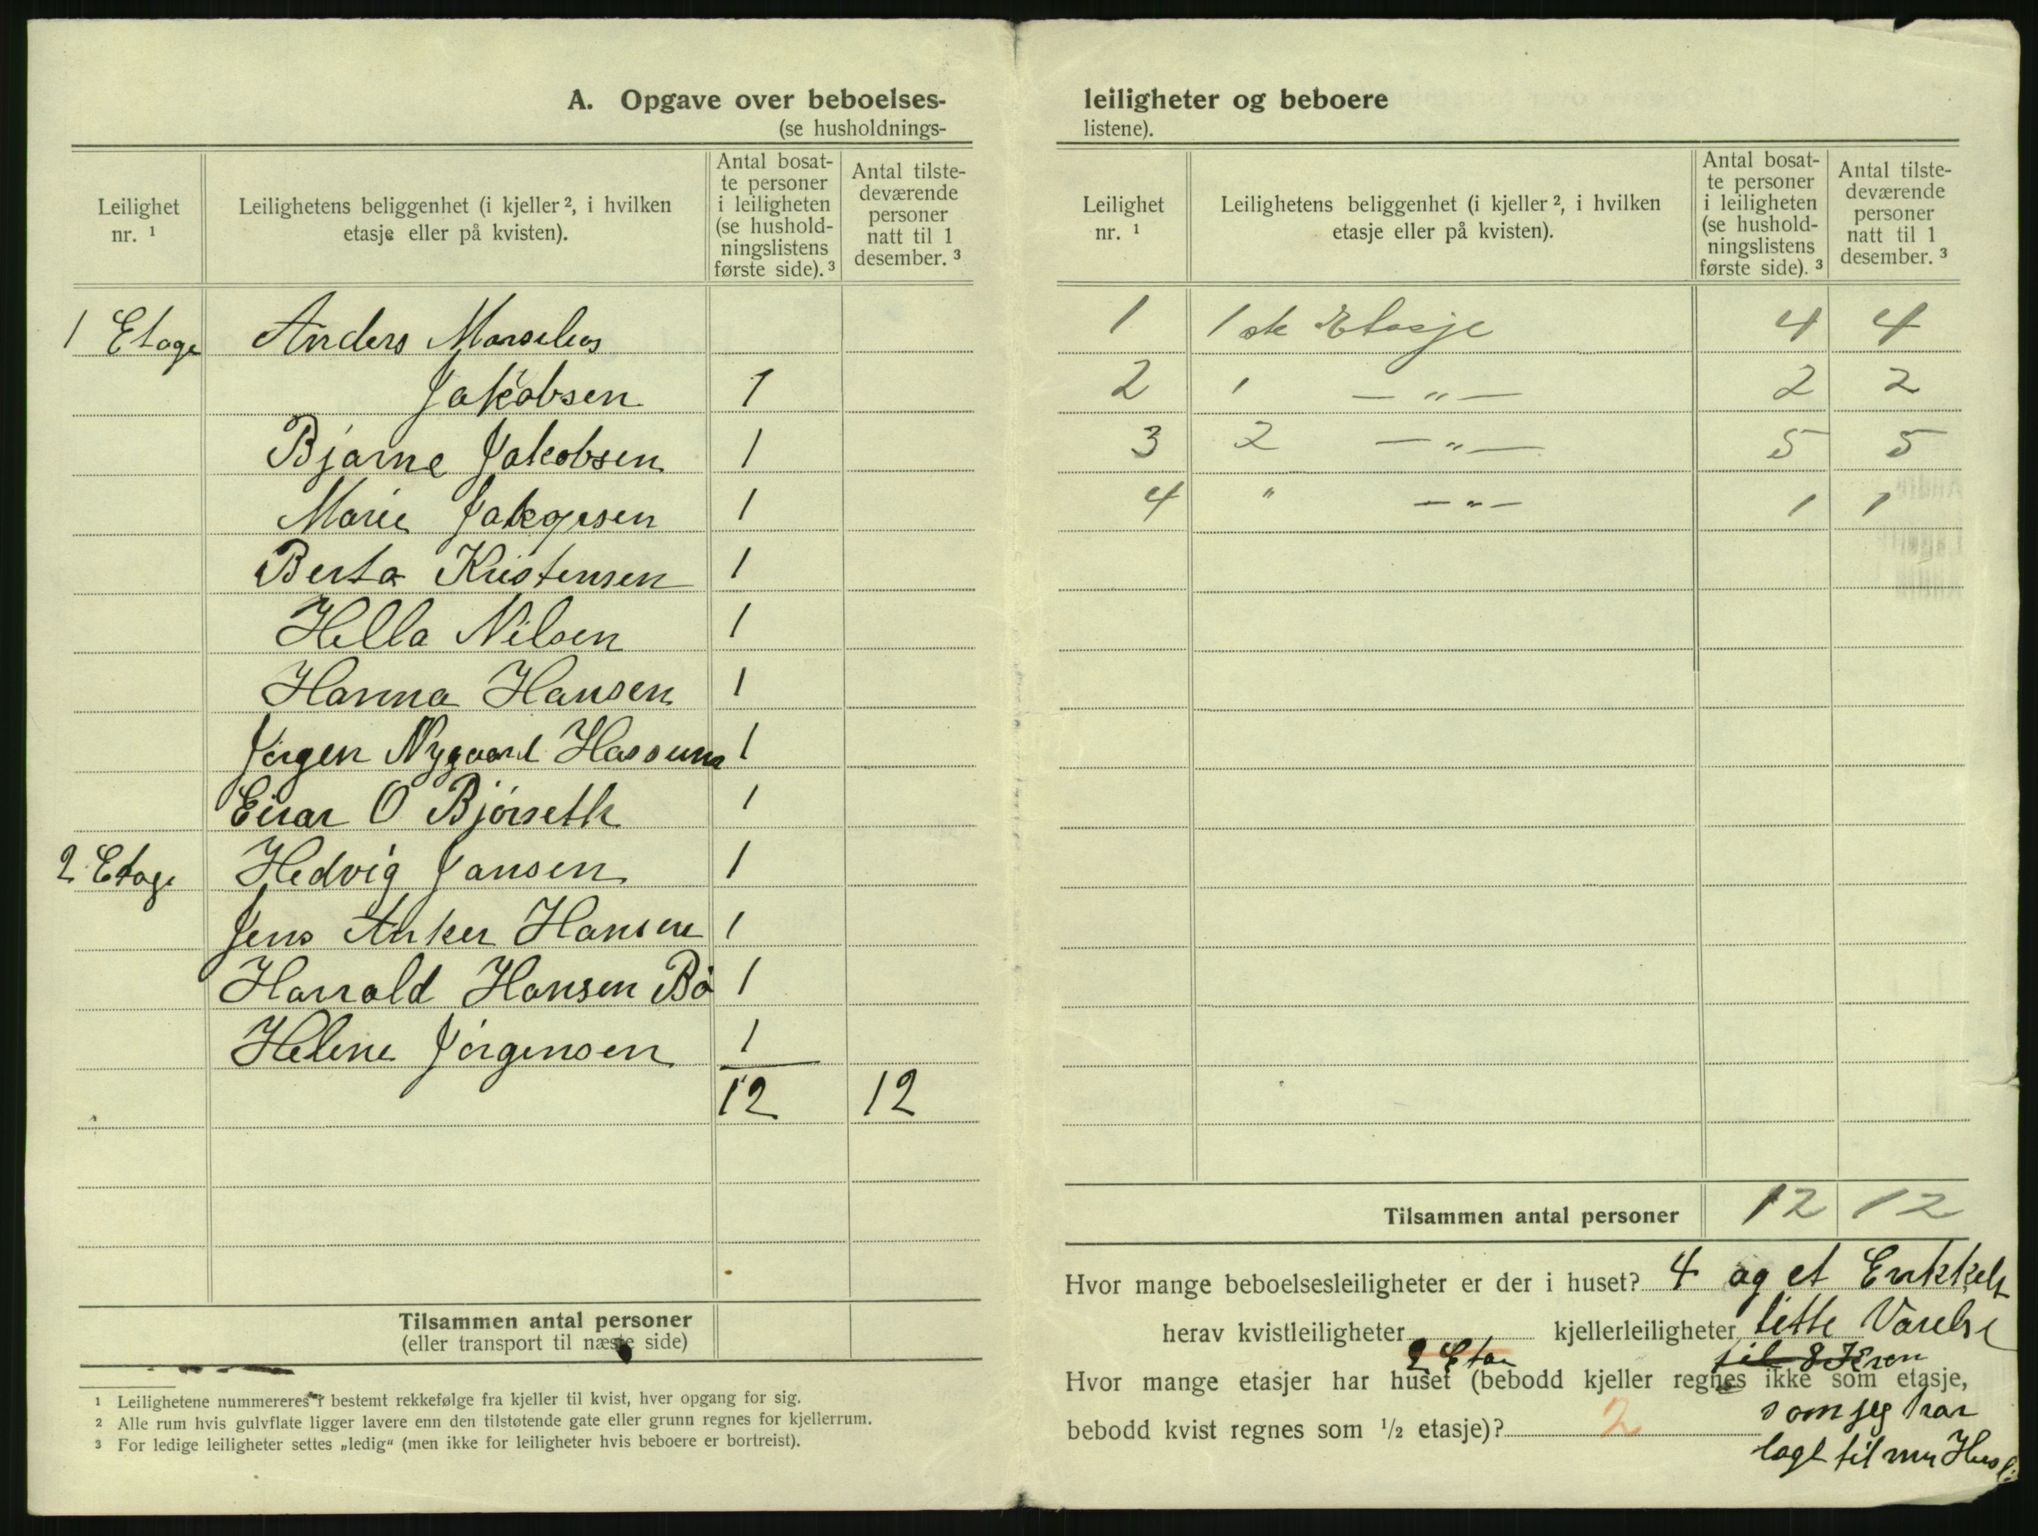 A. Opgave over beboelses-
(se husholdnings-
Leilighet nr. 1
Leilighetens beliggenhet (i kjeller 2, i hvilken etasje eller på kvisten).
Antal bosat-
te personer
i leiligheten
(se hushold-
ningslistens
første side). 3
Antal tilste-
deværende
personer
natt til 1
desember. 3
1 Etage Anders Marselius
Jakobsen 1
Bjarne Jakobsen 1
Marie Jakopsen 1
Berta Kristensen 1
Hella Nilsen 1
Hanna Hansen 1
Jørgen Nygaard Hassum 1
Einar O Bjørseth 1
2 Etage Hedvig Jansen 1
Jens Anker Hansen 1
Harrald Hansen Bø 1
Helene Jørgensen 1
12 12
Tilsammen antal personer
(eller transport til næste side)
1 Leilighetene nummereres i bestemt rekkefølge fra kjeller til kvist, hver opgang for sig.
2 Alle rum hvis gulvflate ligger lavere enn den tilstøtende gate eller grunn regnes for kjellerrum.
3 For ledige leiligheter settes „ledig“ (men ikke for leiligheter hvis beboere er bortreist).
leiligheter og beboere
listene).
Leilighet nr. 1
Leilighetens beliggenhet (i kjeller 2, i hvilken etasje eller på kvisten).
Antal bosat-
te personer
i leiligheten
(se hushold-
ningslistens
første side). 3
Antal tilste-
deværende
personer
natt til 1
desember. 3
1 1ste Etasje 4 4
2 1 — „ — 2 2
3 2 — „ — 5 5
4 " — „ — 1 1
Tilsammen antal personer 12 12
Hvor mange beboelsesleiligheter er der i huset? 4 og et Enkkelt
herav kvistleiligheter kjellerleiligheter litte Varelse
2 Eta til
Hvor mange etasjer har huset (bebodd kjeller regnes ikke som etasje,
som jeg har
bebodd kvist regnes som 1/2 etasje)? 2
lagt til